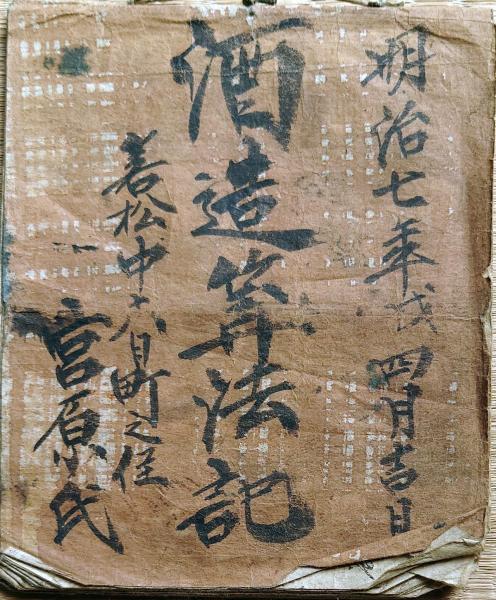 明治七年戌四月吉日
酒造算法記
若松中六日町之住
宮原氏